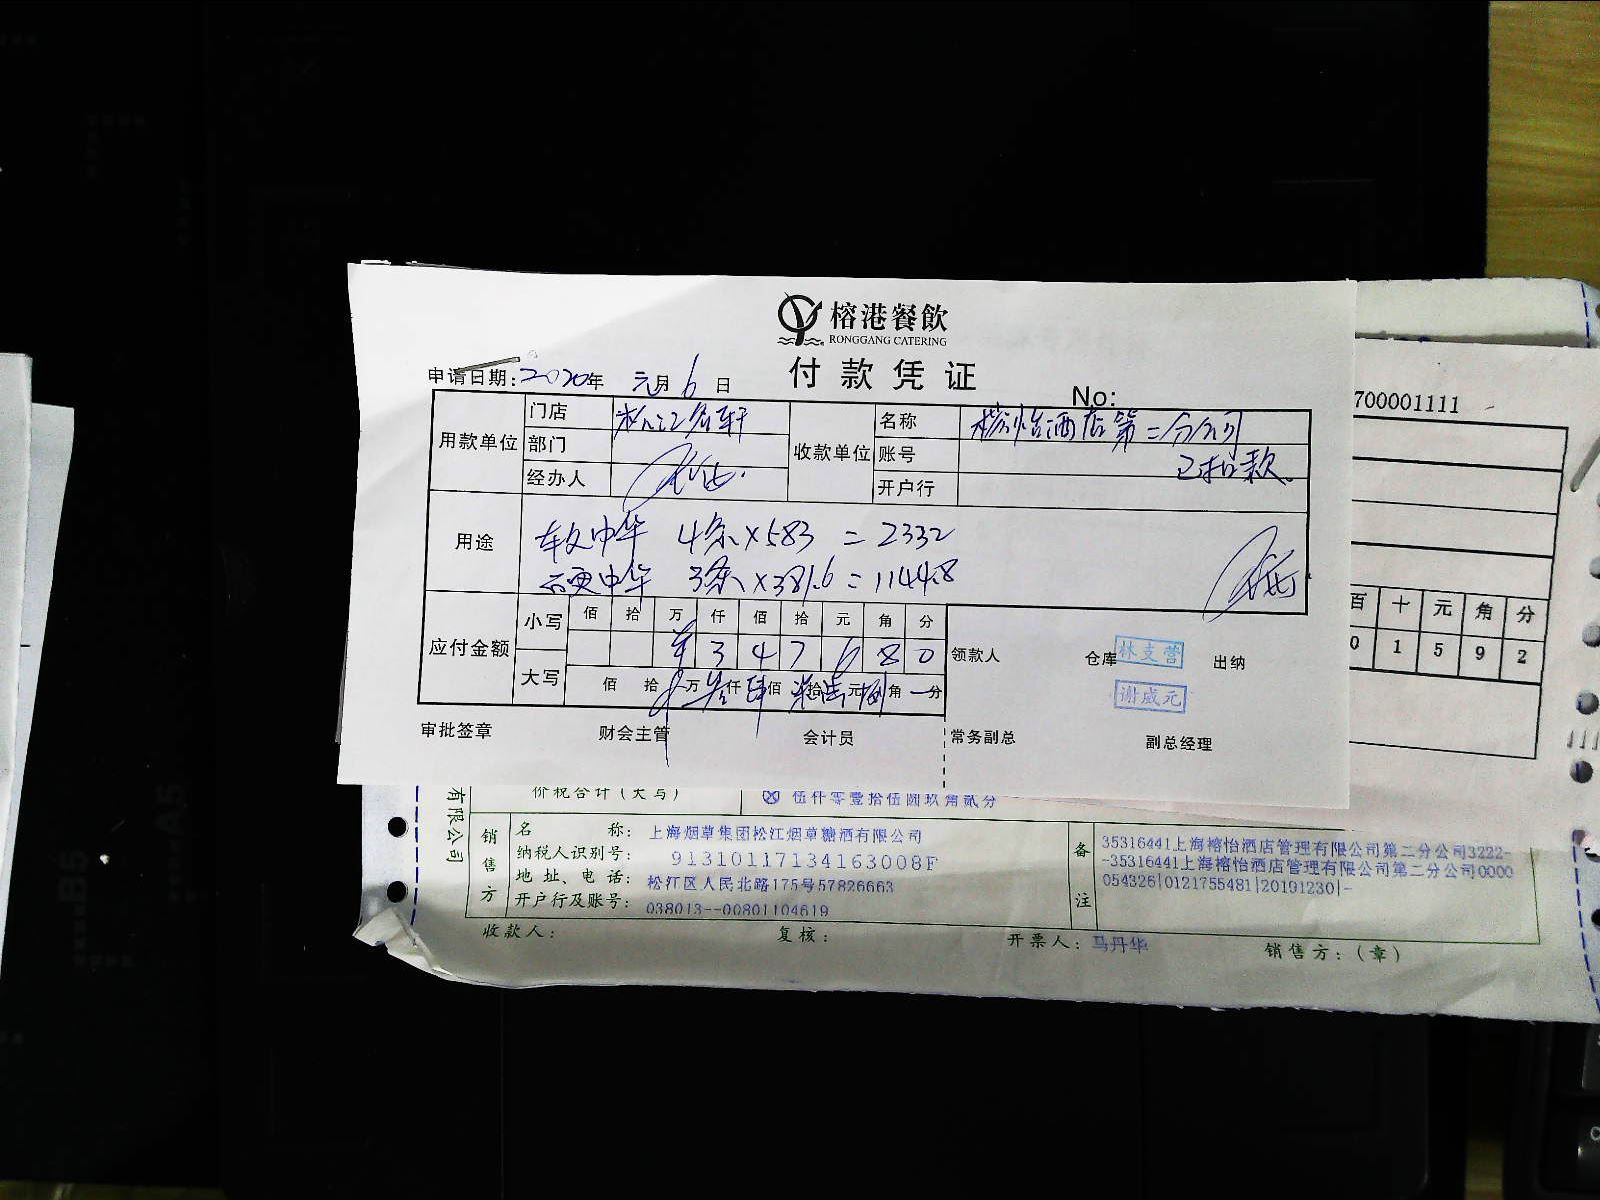 榕港餐飲
RONGGANG CATERING
付款凭证
申请日期：2020年 元月6日
No:
700001111
用款单位 门店 松江名轩 收款单位 名称 榕怡酒店第二分公司
部门 账号 已扣款
经办人 开户行
用途 软中华 4条×583 = 2332
硬中华 3条×381.6 = 1144.8
应付金额 小写 佰 拾 万 仟 佰 拾 元 角 分
¥ 3 4 7 6 8 0
大写 佰 拾 万 叁仟 肆佰 柒拾 陆元 捌角 一分
领款人 仓库 林支营 出纳
谢成元
审批签章 财会主管 会计员 常务副总 副总经理
百 十 元 角 分
0 1 5 9 2
有限公司
价税合计（大写） 伍仟零壹拾伍圆玖角贰分
销售方
名称： 上海烟草集团松江烟草糖酒有限公司
纳税人识别号： 91310117134163008F
地址、电话： 松江区人民北路175号57826663
开户行及账号： 038013--00801104619
备注
35316441上海榕怡酒店管理有限公司第二分公司3222-
-35316441上海榕怡酒店管理有限公司第二分公司0000
054326|0121755481|20191230|-
收款人： 复核： 开票人：马丹华 销售方：（章）
B5
A5